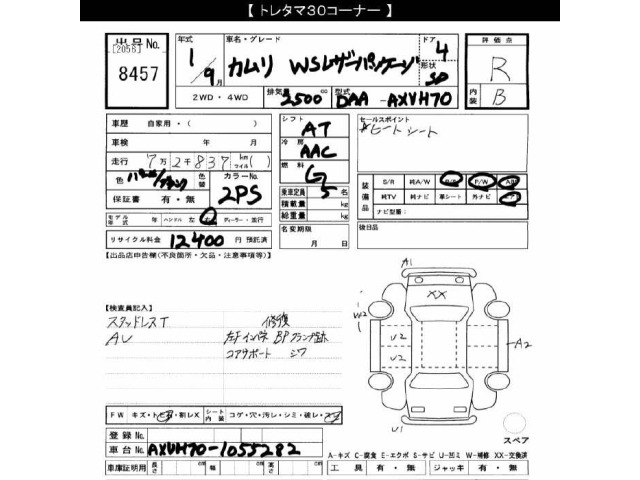 【 トレタマ30コーナー 】
出品No.
[2056]
8457
年式 車名・グレード ドア 評価点
1/9月 カムリ WSレザーパッケージ 4 R
形状 SD
2WD・4WD 排気量 2500 cc 型式 DAA-AXVH70 内装 B
車歴 自家用・( )
車検 年 月
走行 7万2千837 km マイル( )
色 パール/ブラック 色替 カラーNo. 2PS
保証書 有・無
モデル年式 年 ハンドル 左・右 ディーラー・並行
リサイクル料金 12400 円 預託済
シフト AT
冷房 AAC
燃料 G
乗車定員 5 名
積載量 kg
総重量 kg
名変期限
月 日
セールスポイント
ヒートシート
装備品 S/R 純A/W P/S P/W ABS
純TV 純ナビ 革シート 外ナビ エアB
ナビ型番:
後日品
【出品店申告欄(不良箇所・欠品・注意事項等)】
【検査員記入】
スタッドレスT 修復
AU 左Fインパネ BPフランジ
コアサポート シワ
A1
XX
W2 U2 A2
U2
U1
スペア
FW キズ・トビ・割レX シート内装 コゲ・穴・汚レ・シミ・破レ・スレ
登録No.
車台No. AXVH70-1055282
車庫証明用 長さ cm 幅 cm 高さ cm
A-キズ C-腐食 E-エクボ S-サビ U-凹ミ W-補修 XX-交換済
工具 有・無 ジャッキ 有・無